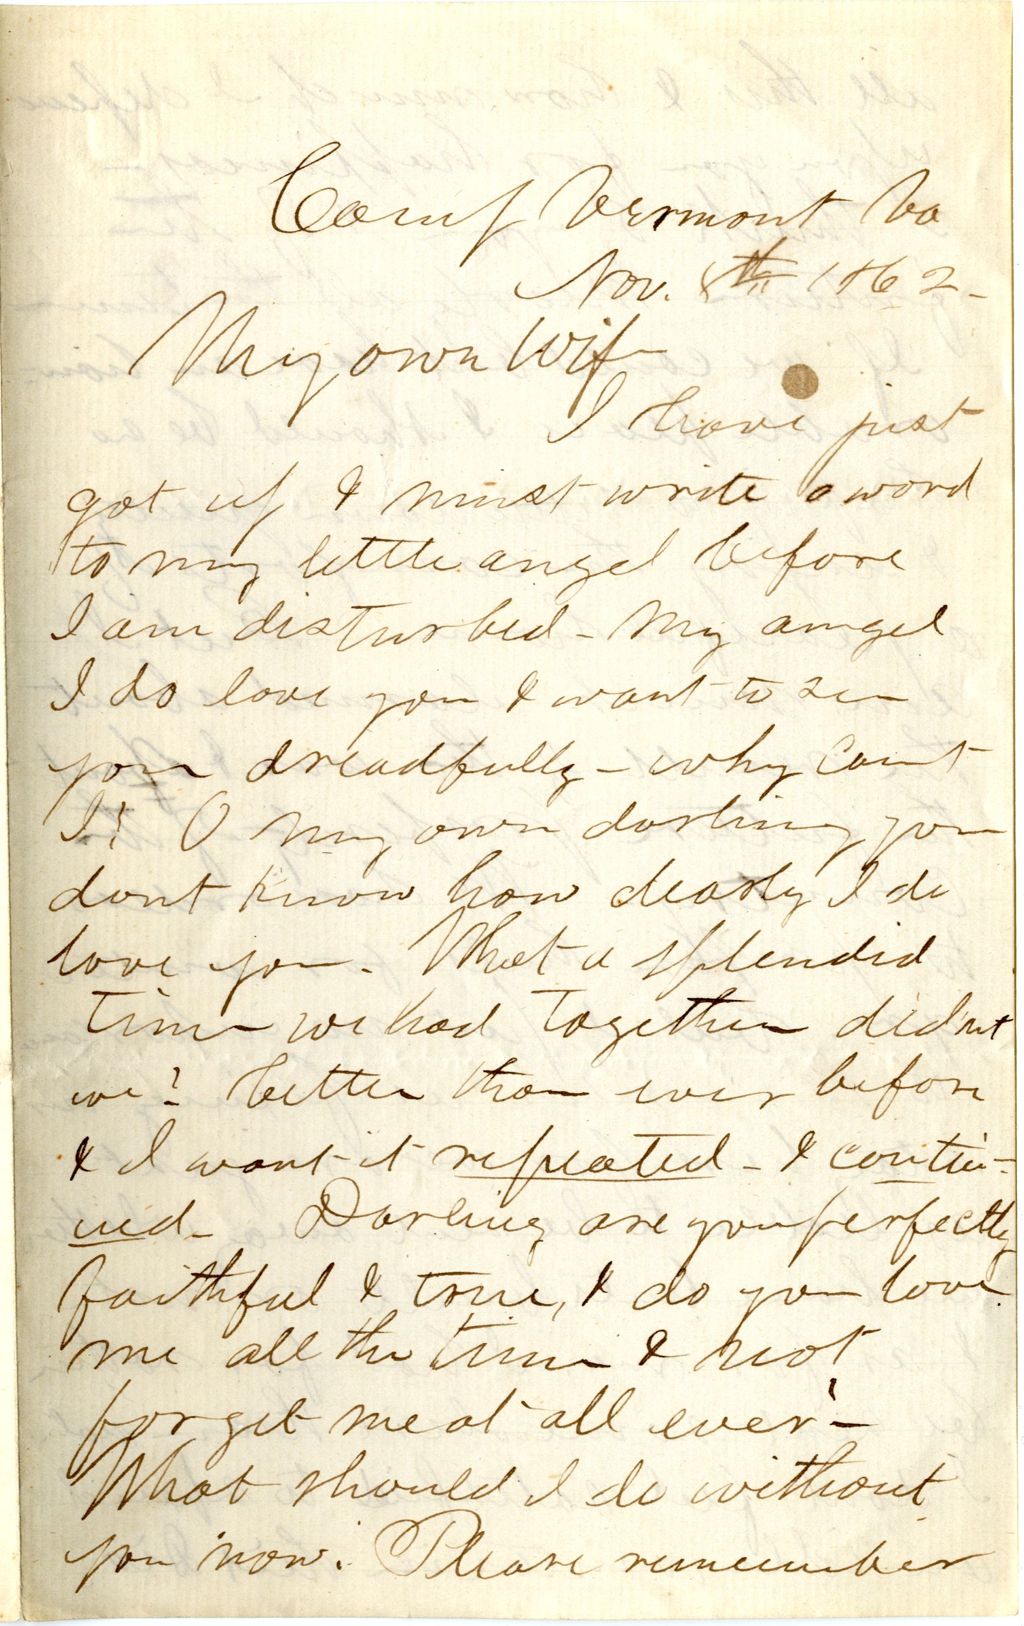 Camp Vermont Va
Nov. 8th 1862-
My own Wife
I have just
got up & must write a word
to my little angel before
I am disturbed - My angel
I do love you & want to see
you dreadfully - why cant
I? O my own darling you
dont know how dearly I do
love you. What a splendid
time we had together did'nt
we? better than ever before
& I want it repeated - & contin-
ued - Darling are you perfectly
faithful & true, & do you love
me all the time & not
forget me at all ever? -
What should I do without
you now. Please remember